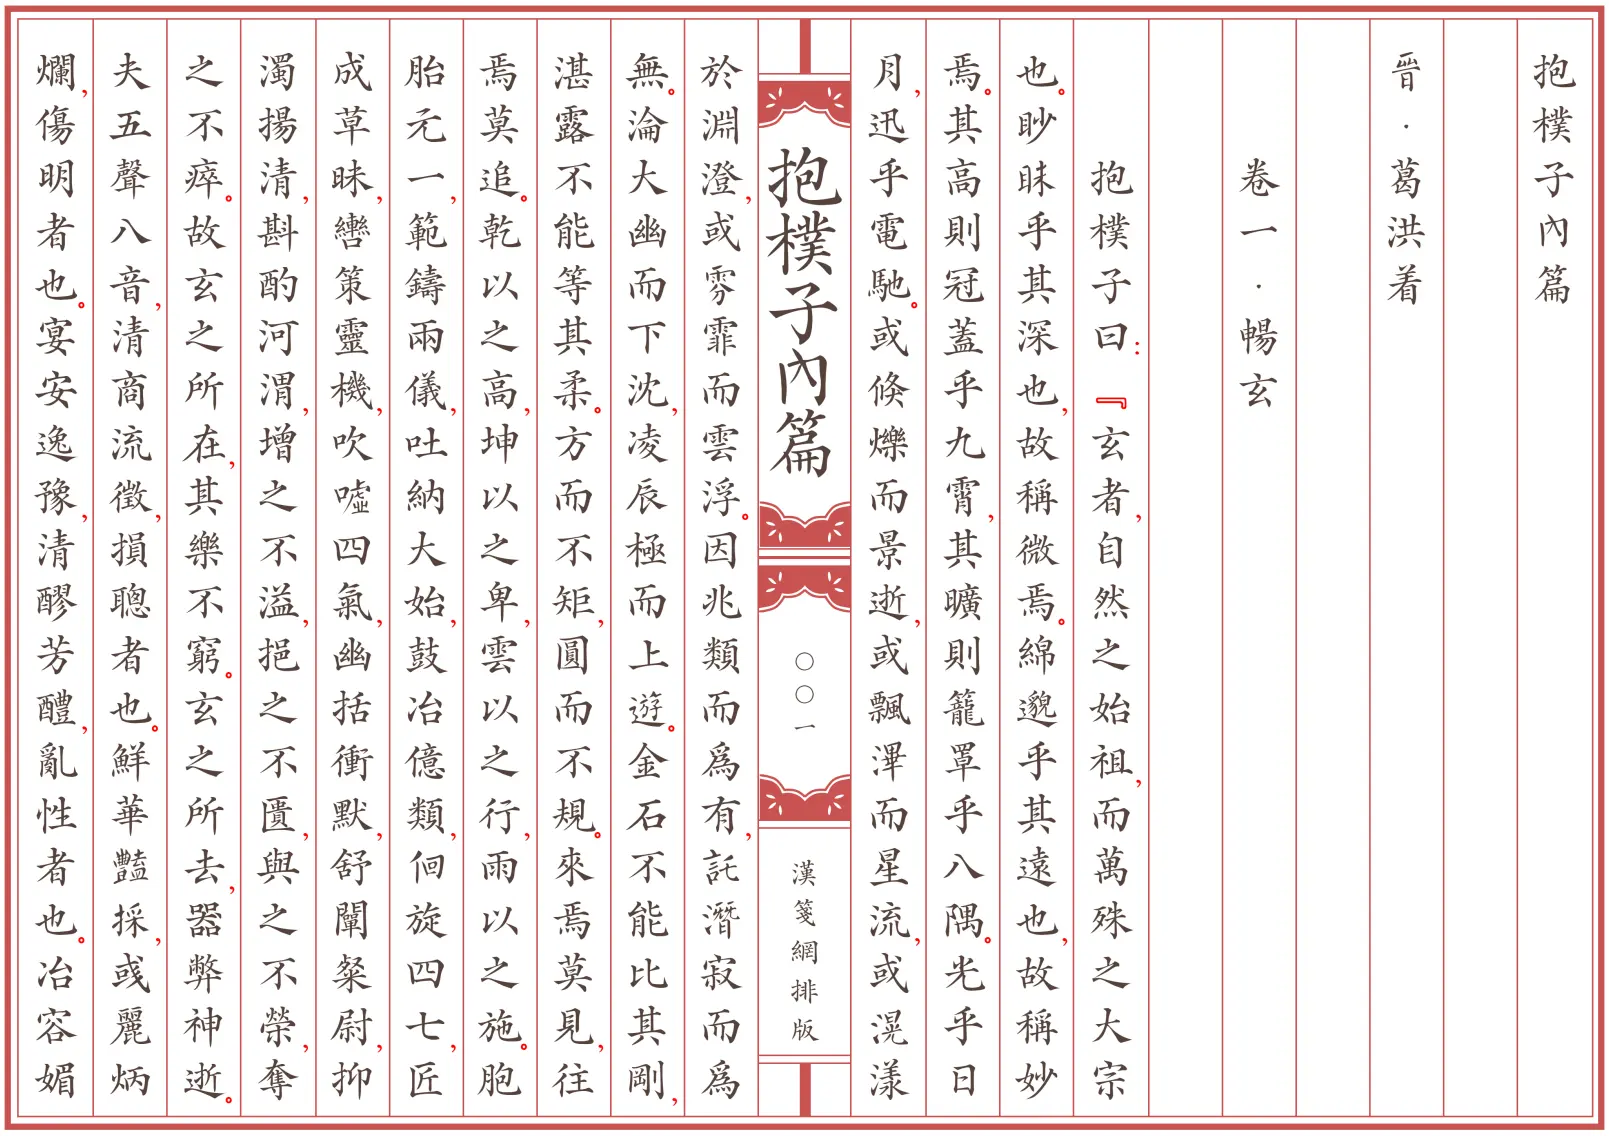 抱樸子內篇
晉·葛洪着
卷一·暢玄
抱樸子曰：『玄者，自然之始祖，而萬殊之大宗
也。眇眜乎其深也，故稱微焉。綿邈乎其遠也，故稱妙
焉。其高則冠蓋乎九霄，其曠則籠罩乎八隅。光乎日
月，迅乎電馳。或倏爍而景逝，或飄滭而星流，或滉漾
於淵澄，或雰霏而雲浮。因兆類而為有，託潛寂而為
無。淪大幽而下沈，凌辰極而上遊。金石不能比其剛，
湛露不能等其柔。方而不矩，圓而不規。來焉莫見，往
焉莫追。乾以之高，坤以之卑，雲以之行，雨以之施。胞
胎元一，範鑄兩儀，吐納大始，鼓冶億類，佪旋四七，匠
成草昧，轡策靈機，吹噓四氣，幽括衝默，舒闡粲尉，抑
濁揚清，斟酌河渭，增之不溢，挹之不匱，與之不榮，奪
之不瘁。故玄之所在，其樂不窮。玄之所去，器弊神逝。
夫五聲八音，清商流徵，損聰者也。鮮華豔採，彧麗炳
爛，傷明者也。宴安逸豫，清醪芳醴，亂性者也。冶容媚
抱樸子內篇
〇〇一
漢箋網排版